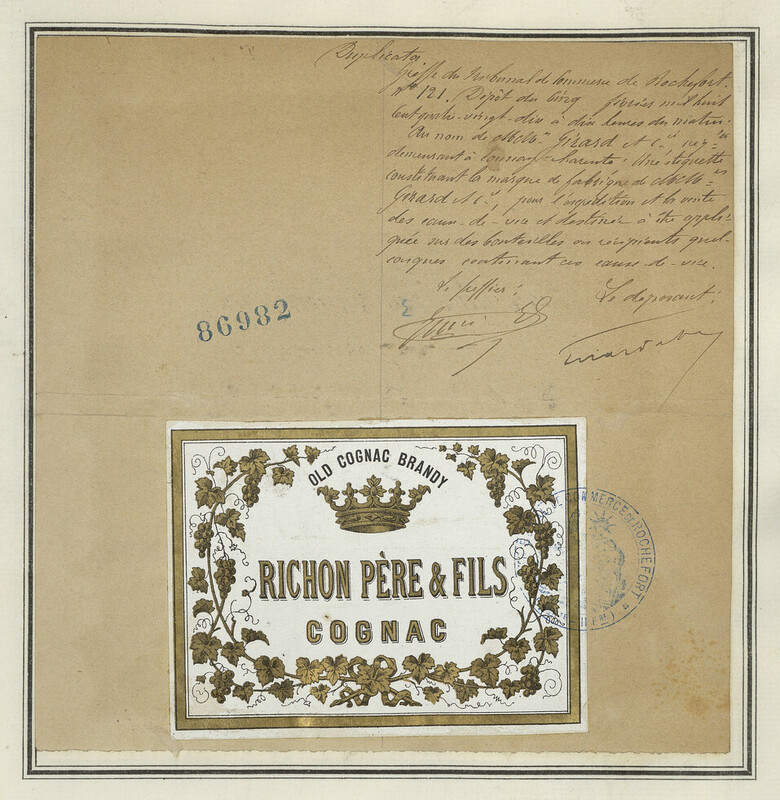 Duplicata
Greffe du Tribunal de Commerce de Rochefort.
N° 121. Dépôt du cinq février mil huit
cent quatre-vingt-dix à dix heures du matin.
Au nom de MM Girard et Cie,
demeurant à Tonnay-Charente. Une étiquette
constituant la marque de fabrique de MM
Girard et Cie, pour l'expédition et la vente
des eaux-de-vie et destinée à être appli-
quée sur des bouteilles ou récipients quel-
conques contenant ces eaux-de-vie.
Le greffier:
Le déposant:
86982
OLD COGNAC BRANDY
RICHON PÈRE & FILS
COGNAC
COMMERCE DE ROCHEFORT